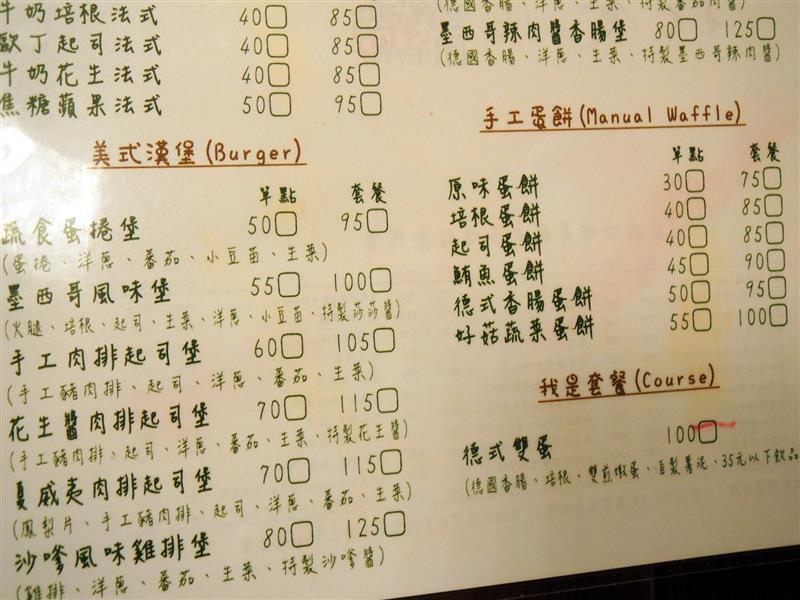 牛奶培根法式 40 85
歐丁起司法式 40 85
牛奶花生法式 40 85
焦糖蘋果法式 50 95
美式漢堡(Burger)
單點 套餐
蔬食蛋捲堡 50 95
(蛋捲、洋蔥、番茄、小豆苗、生菜)
墨西哥風味堡 55 100
(火腿、培根、起司、生菜、洋蔥、小豆苗、特製莎莎醬)
手工肉排起司堡 60 105
(手工豬肉排、起司、洋蔥、番茄、生菜)
花生醬肉排起司堡 70 115
(手工豬肉排、起司、洋蔥、番茄、生菜、特製花生醬)
夏威夷肉排起司堡 70 115
(鳳梨片、手工豬肉排、起司、洋蔥、番茄、生菜)
沙嗲風味雞排堡 80 125
(雞排、洋蔥、番茄、生菜、特製沙嗲醬)
(德國香腸、洋蔥、生菜、特製番茄肉醬)
墨西哥辣肉醬香腸堡 80 125
(德國香腸、洋蔥、生菜、特製墨西哥辣肉醬)
手工蛋餅(Manual Waffle)
單點 套餐
原味蛋餅 30 75
培根蛋餅 40 85
起司蛋餅 40 85
鮪魚蛋餅 45 90
德式香腸蛋餅 50 95
好菇蔬菜蛋餅 55 100
我是套餐(Course)
德式雙蛋 100
(德國香腸、培根、雙煎嫩蛋、自製薯泥、35元以下飲品